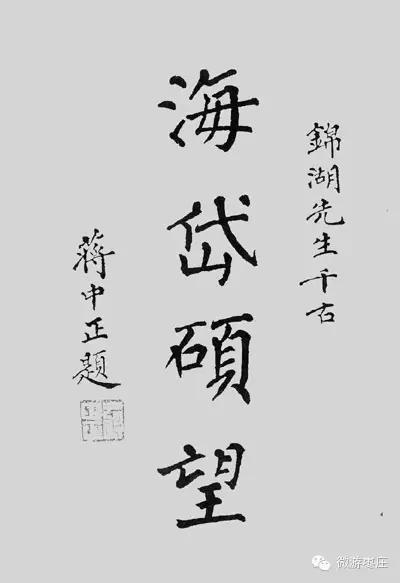 錦湖先生千古
海岱碩望
蔣中正題
微游枣庄